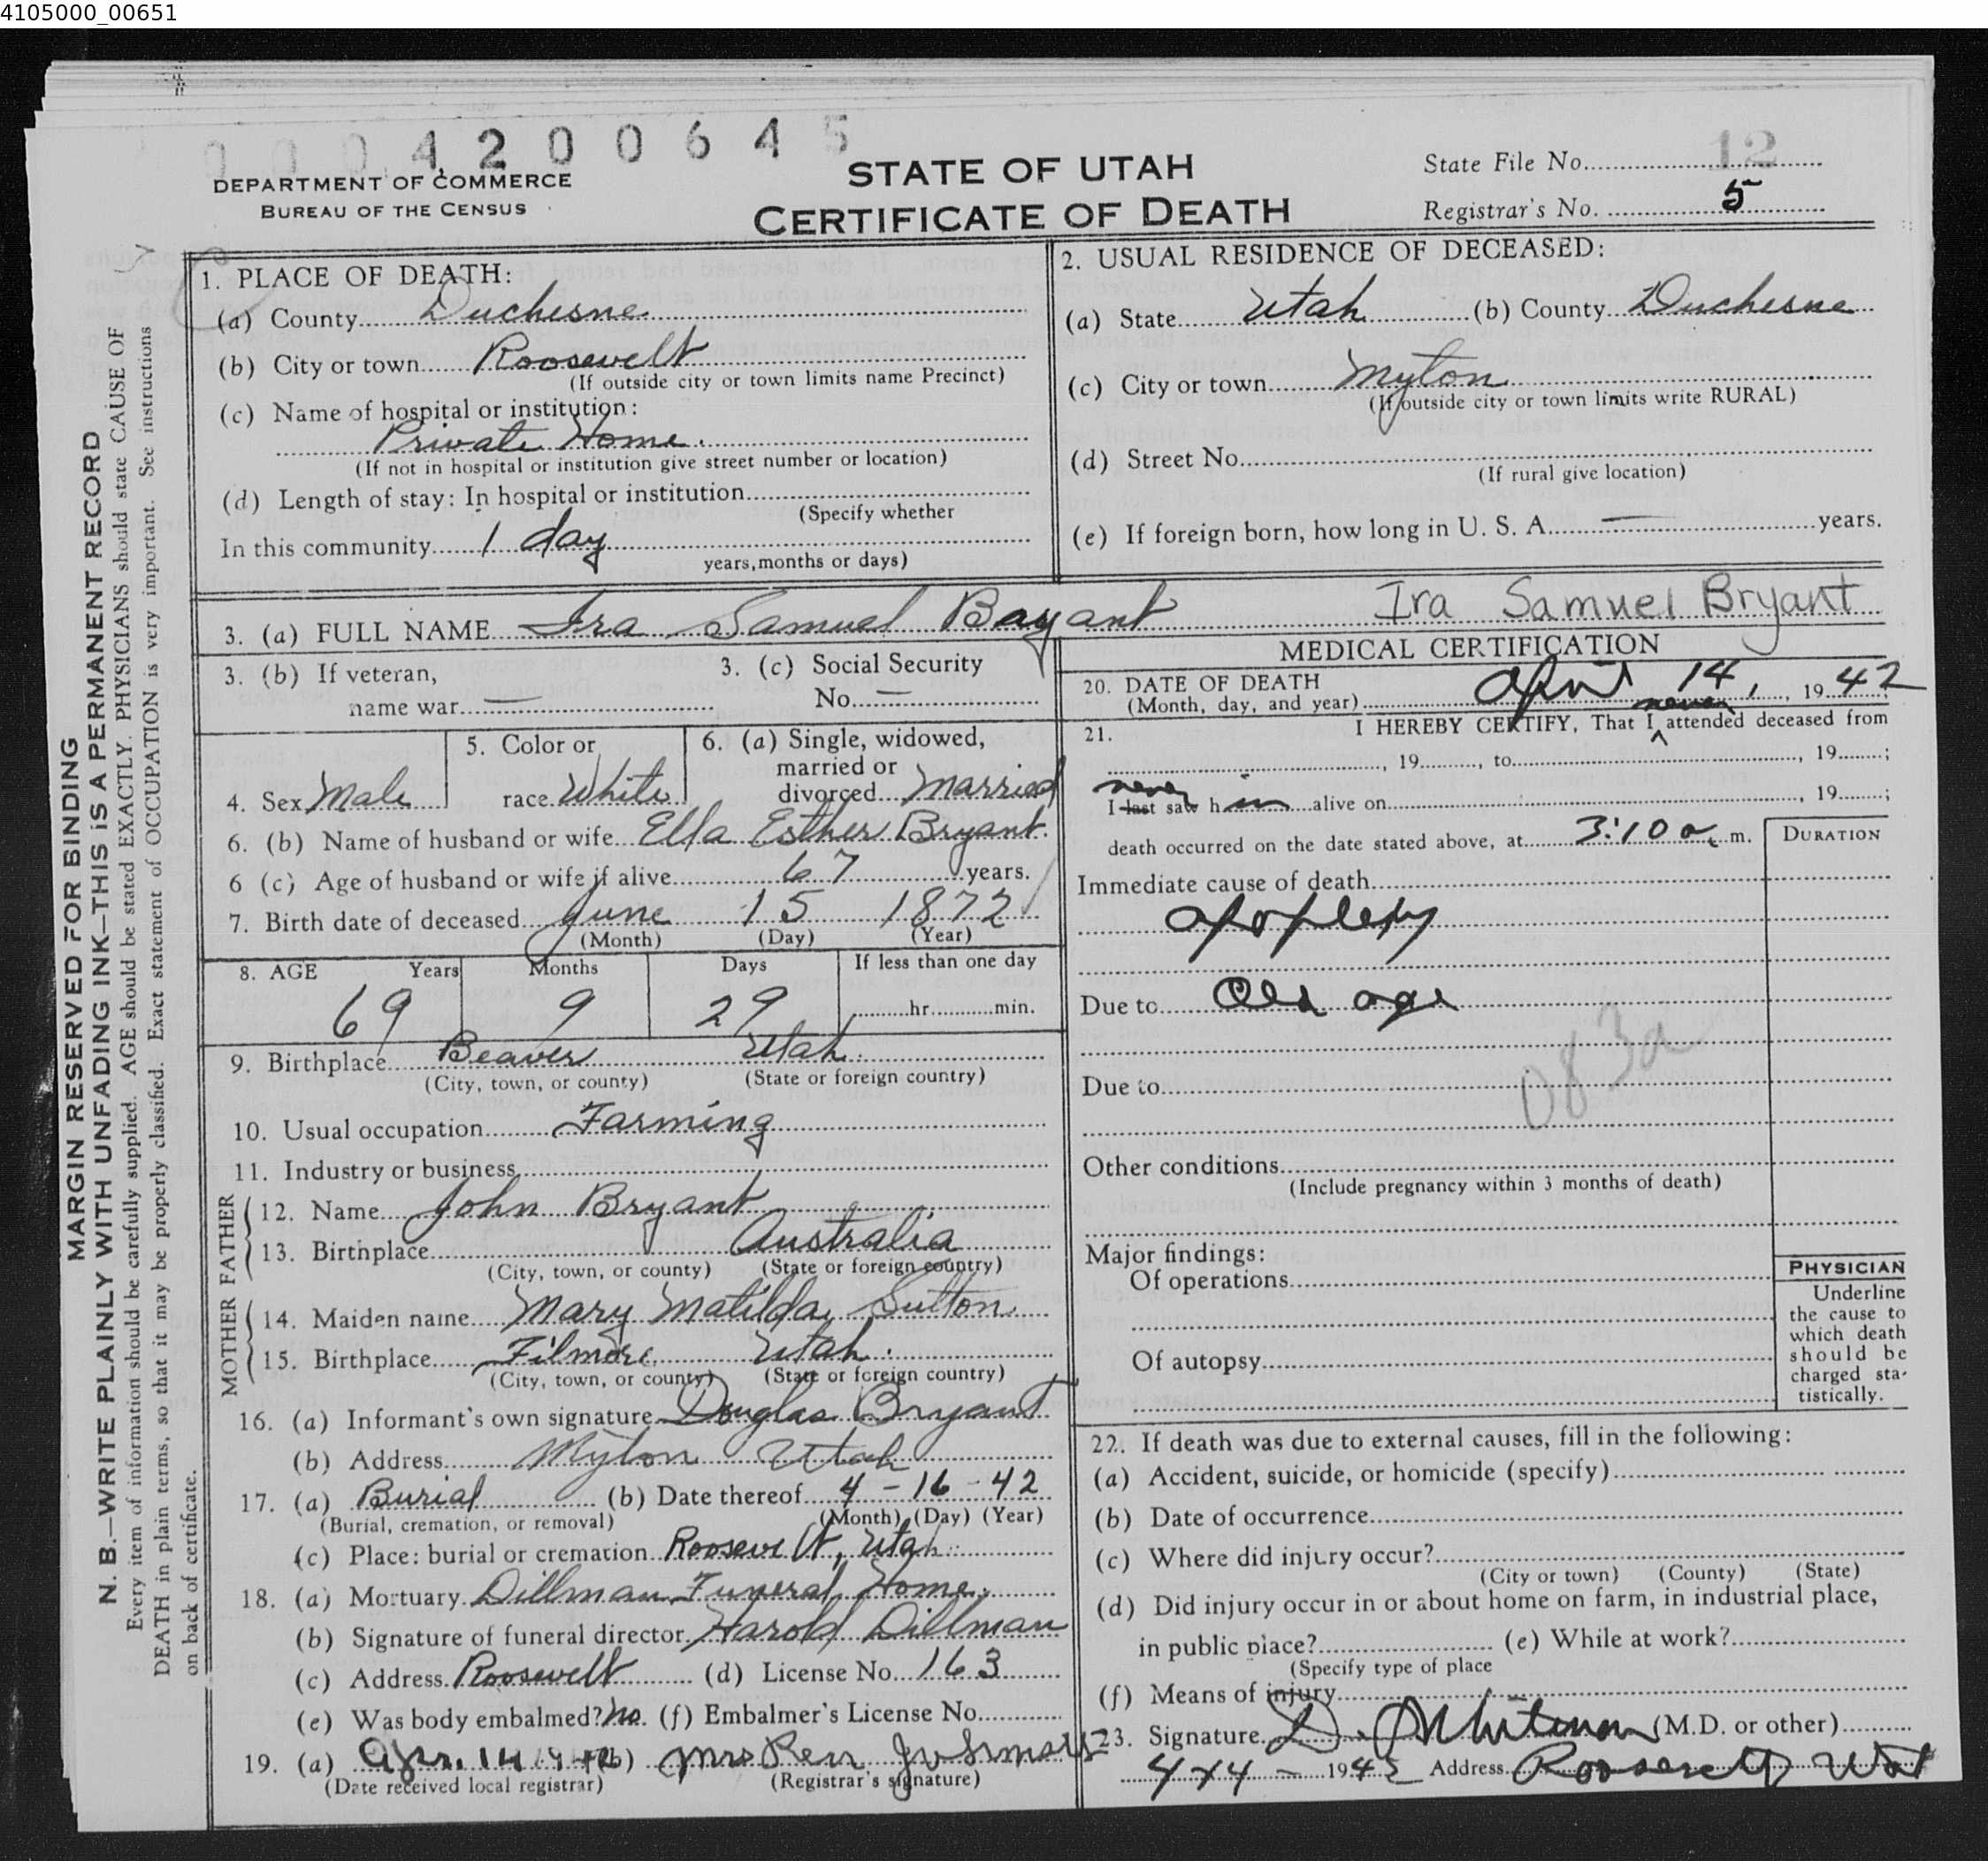 4105000_00651
0004200645
12
DEPARTMENT OF COMMERCE
BUREAU OF THE CENSUS
STATE OF UTAH
CERTIFICATE OF DEATH
State File No.
Registrar's No. 5
1. PLACE OF DEATH:
(a) County Duchesne
(b) City or town Roosevelt
(If outside city or town limits name Precinct)
(c) Name of hospital or institution:
Private Home.
(If not in hospital or institution give street number or location)
(d) Length of stay: In hospital or institution
(Specify whether
In this community 1 day
years, months or days)
2. USUAL RESIDENCE OF DECEASED:
(a) State Utah (b) County Duchesne
(c) City or town Myton
(If outside city or town limits write RURAL)
(d) Street No.
(If rural give location)
(e) If foreign born, how long in U. S. A. — years.
3. (a) FULL NAME Ira Samuel Bayant Ira Samuel Bryant
3. (b) If veteran,
name war —
3. (c) Social Security
No. —
4. Sex Male
5. Color or
race White
6. (a) Single, widowed,
married or
divorced Married
6. (b) Name of husband or wife Ella Esther Bryant.
6 (c) Age of husband or wife if alive 67 years.
7. Birth date of deceased June 15 1872
(Month) (Day) (Year)
8. AGE Years Months Days If less than one day
69 9 29 hr. min.
9. Birthplace Beaver Utah.
(City, town, or county) (State or foreign country)
10. Usual occupation Farming
11. Industry or business
MOTHER FATHER
12. Name John Bryant
13. Birthplace Australia
(City, town, or county) (State or foreign country)
14. Maiden name Mary Matilda Sutton
15. Birthplace Filmore Utah.
(City, town, or county) (State or foreign country)
16. (a) Informant's own signature Douglas Bryant
(b) Address Myton Utah
17. (a) Burial (b) Date thereof 4-16-42
(Burial, cremation, or removal) (Month) (Day) (Year)
(c) Place: burial or cremation Roosevelt, Utah
18. (a) Mortuary Dillman Funeral Home.
(b) Signature of funeral director Harold Dillman
(c) Address Roosevelt (d) License No. 163
(e) Was body embalmed? No. (f) Embalmer's License No.
19. (a) Apr. 14 1942 (b) Mrs Ren
(Date received local registrar) (Registrar's signature)
MEDICAL CERTIFICATION
20. DATE OF DEATH
(Month, day, and year) April 14, 1942
never
21. I HEREBY CERTIFY, That I attended deceased from
, 19 , to , 19 ;
never
I last saw h im alive on , 19 ;
death occurred on the date stated above, at 3:10 a. m.
DURATION
Immediate cause of death
apoplexy
Due to Old age
083a
Due to
Other conditions
(Include pregnancy within 3 months of death)
Major findings:
Of operations
Of autopsy
PHYSICIAN
Underline
the cause to
which death
should be
charged sta-
tistically.
22. If death was due to external causes, fill in the following:
(a) Accident, suicide, or homicide (specify)
(b) Date of occurrence
(c) Where did injury occur?
(City or town) (County) (State)
(d) Did injury occur in or about home on farm, in industrial place,
in public place? (e) While at work?
(Specify type of place
(f) Means of injury
23. Signature Whitmore (M.D. or other)
1942 Address Roosevelt Utah
MARGIN RESERVED FOR BINDING
N. B.—WRITE PLAINLY WITH UNFADING INK—THIS IS A PERMANENT RECORD
Every item of information should be carefully supplied. AGE should be stated EXACTLY. PHYSICIANS should state CAUSE OF
DEATH in plain terms, so that it may be properly classified. Exact statement of OCCUPATION is very important. See instructions
on back of certificate.